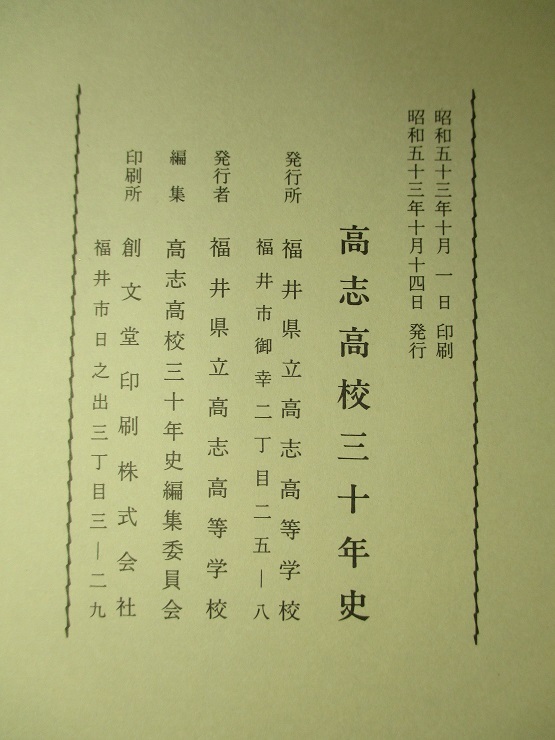 昭和五十三年十月 一 日 印刷
昭和五十三年十月十四日 発行
高志高校三十年史
発行所 福井県立高志高等学校
福井市御幸二丁目二五―八
発行者 福井県立高志高等学校
編集 高志高校三十年史編集委員会
印刷所 創文堂印刷株式会社
福井市日之出三丁目三―二九